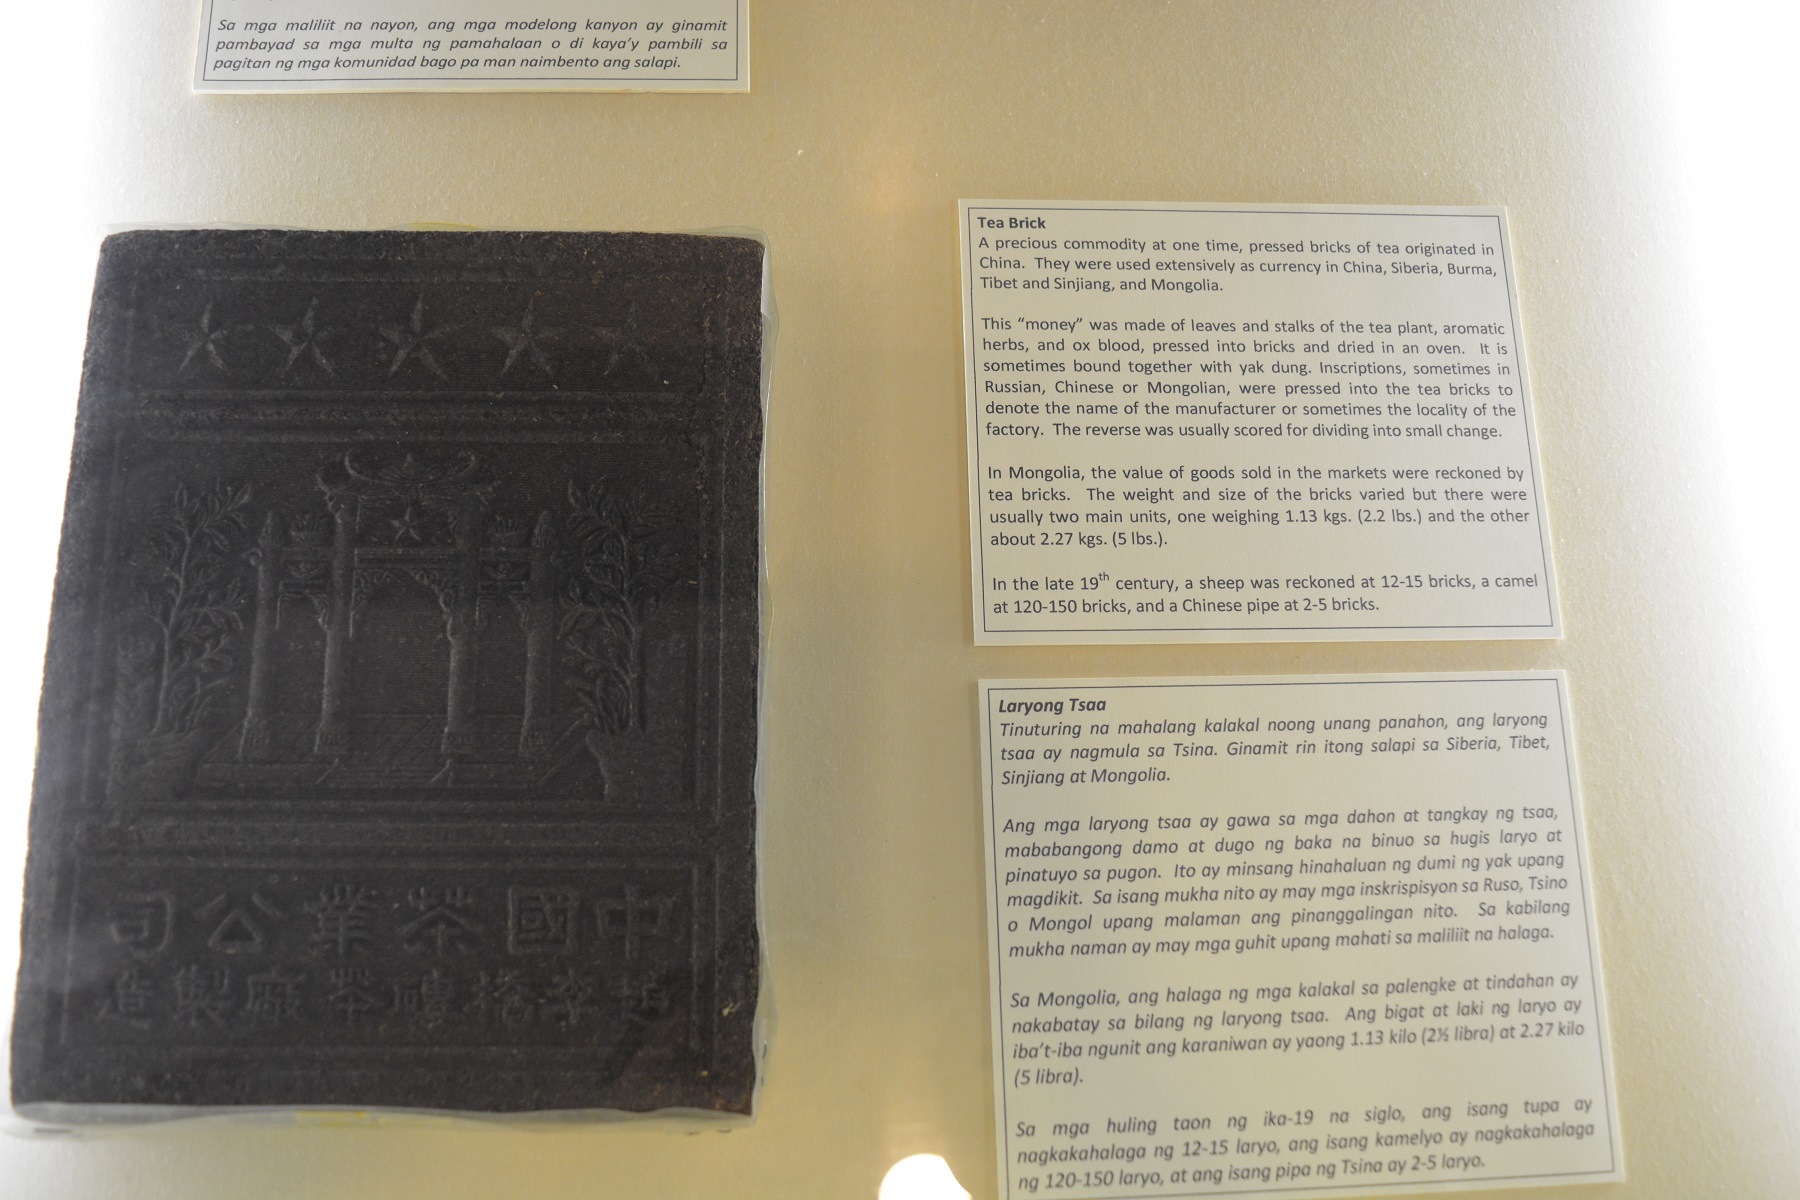 Sa mga maliliit na nayon, ang mga modelong kanyon ay ginamit
pambayad sa mga multa ng pamahalaan o di kaya'y pambili sa
pagitan ng mga komunidad bago pa man naimbento ang salapi.
Tea Brick
A precious commodity at one time, pressed bricks of tea originated in
China. They were used extensively as currency in China, Siberia, Burma,
Tibet and Sinjiang, and Mongolia.
This “money” was made of leaves and stalks of the tea plant, aromatic
herbs, and ox blood, pressed into bricks and dried in an oven. It is
sometimes bound together with yak dung. Inscriptions, sometimes in
Russian, Chinese or Mongolian, were pressed into the tea bricks to
denote the name of the manufacturer or sometimes the locality of the
factory. The reverse was usually scored for dividing into small change.
In Mongolia, the value of goods sold in the markets were reckoned by
tea bricks. The weight and size of the bricks varied but there were
usually two main units, one weighing 1.13 kgs. (2.2 lbs.) and the other
about 2.27 kgs. (5 lbs.).
In the late 19th century, a sheep was reckoned at 12-15 bricks, a camel
at 120-150 bricks, and a Chinese pipe at 2-5 bricks.
Laryong Tsaa
Tinuturing na mahalang kalakal noong unang panahon, ang laryong
tsaa ay nagmula sa Tsina. Ginamit rin itong salapi sa Siberia, Tibet,
Sinjiang at Mongolia.
Ang mga laryong tsaa ay gawa sa mga dahon at tangkay ng tsaa,
mababangong damo at dugo ng baka na binuo sa hugis laryo at
pinatuyo sa pugon. Ito ay minsang hinahaluan ng dumi ng yak upang
magdikit. Sa isang mukha nito ay may mga inskrispisyon sa Ruso, Tsino
o Mongol upang malaman ang pinanggalingan nito. Sa kabilang
mukha naman ay may mga guhit upang mahati sa maliliit na halaga.
Sa Mongolia, ang halaga ng mga kalakal sa palengke at tindahan ay
nakabatay sa bilang ng laryong tsaa. Ang bigat at laki ng laryo ay
iba't-iba ngunit ang karaniwan ay yaong 1.13 kilo (2½ libra) at 2.27 kilo
(5 libra).
Sa mga huling taon ng ika-19 na siglo, ang isang tupa ay
nagkakahalaga ng 12-15 laryo, ang isang kamelyo ay nagkakahalaga
ng 120-150 laryo, at ang isang pipa ng Tsina ay 2-5 laryo.
司公業茶國中
造製廠茶磚橋李趙